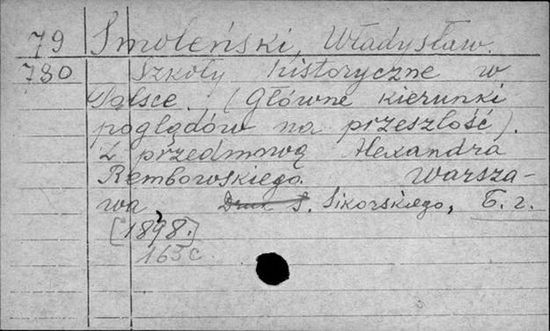 79 Smoleński, Władysław.
780 Szkoły historyczne w
Polsce. (Główne kierunki
poglądów na przeszłość).
Z przedmową Alexandra
Rembowskiego. Warsza-
wa Druk S. Sikorskiego, Б. г.
[1898.]
163 с.